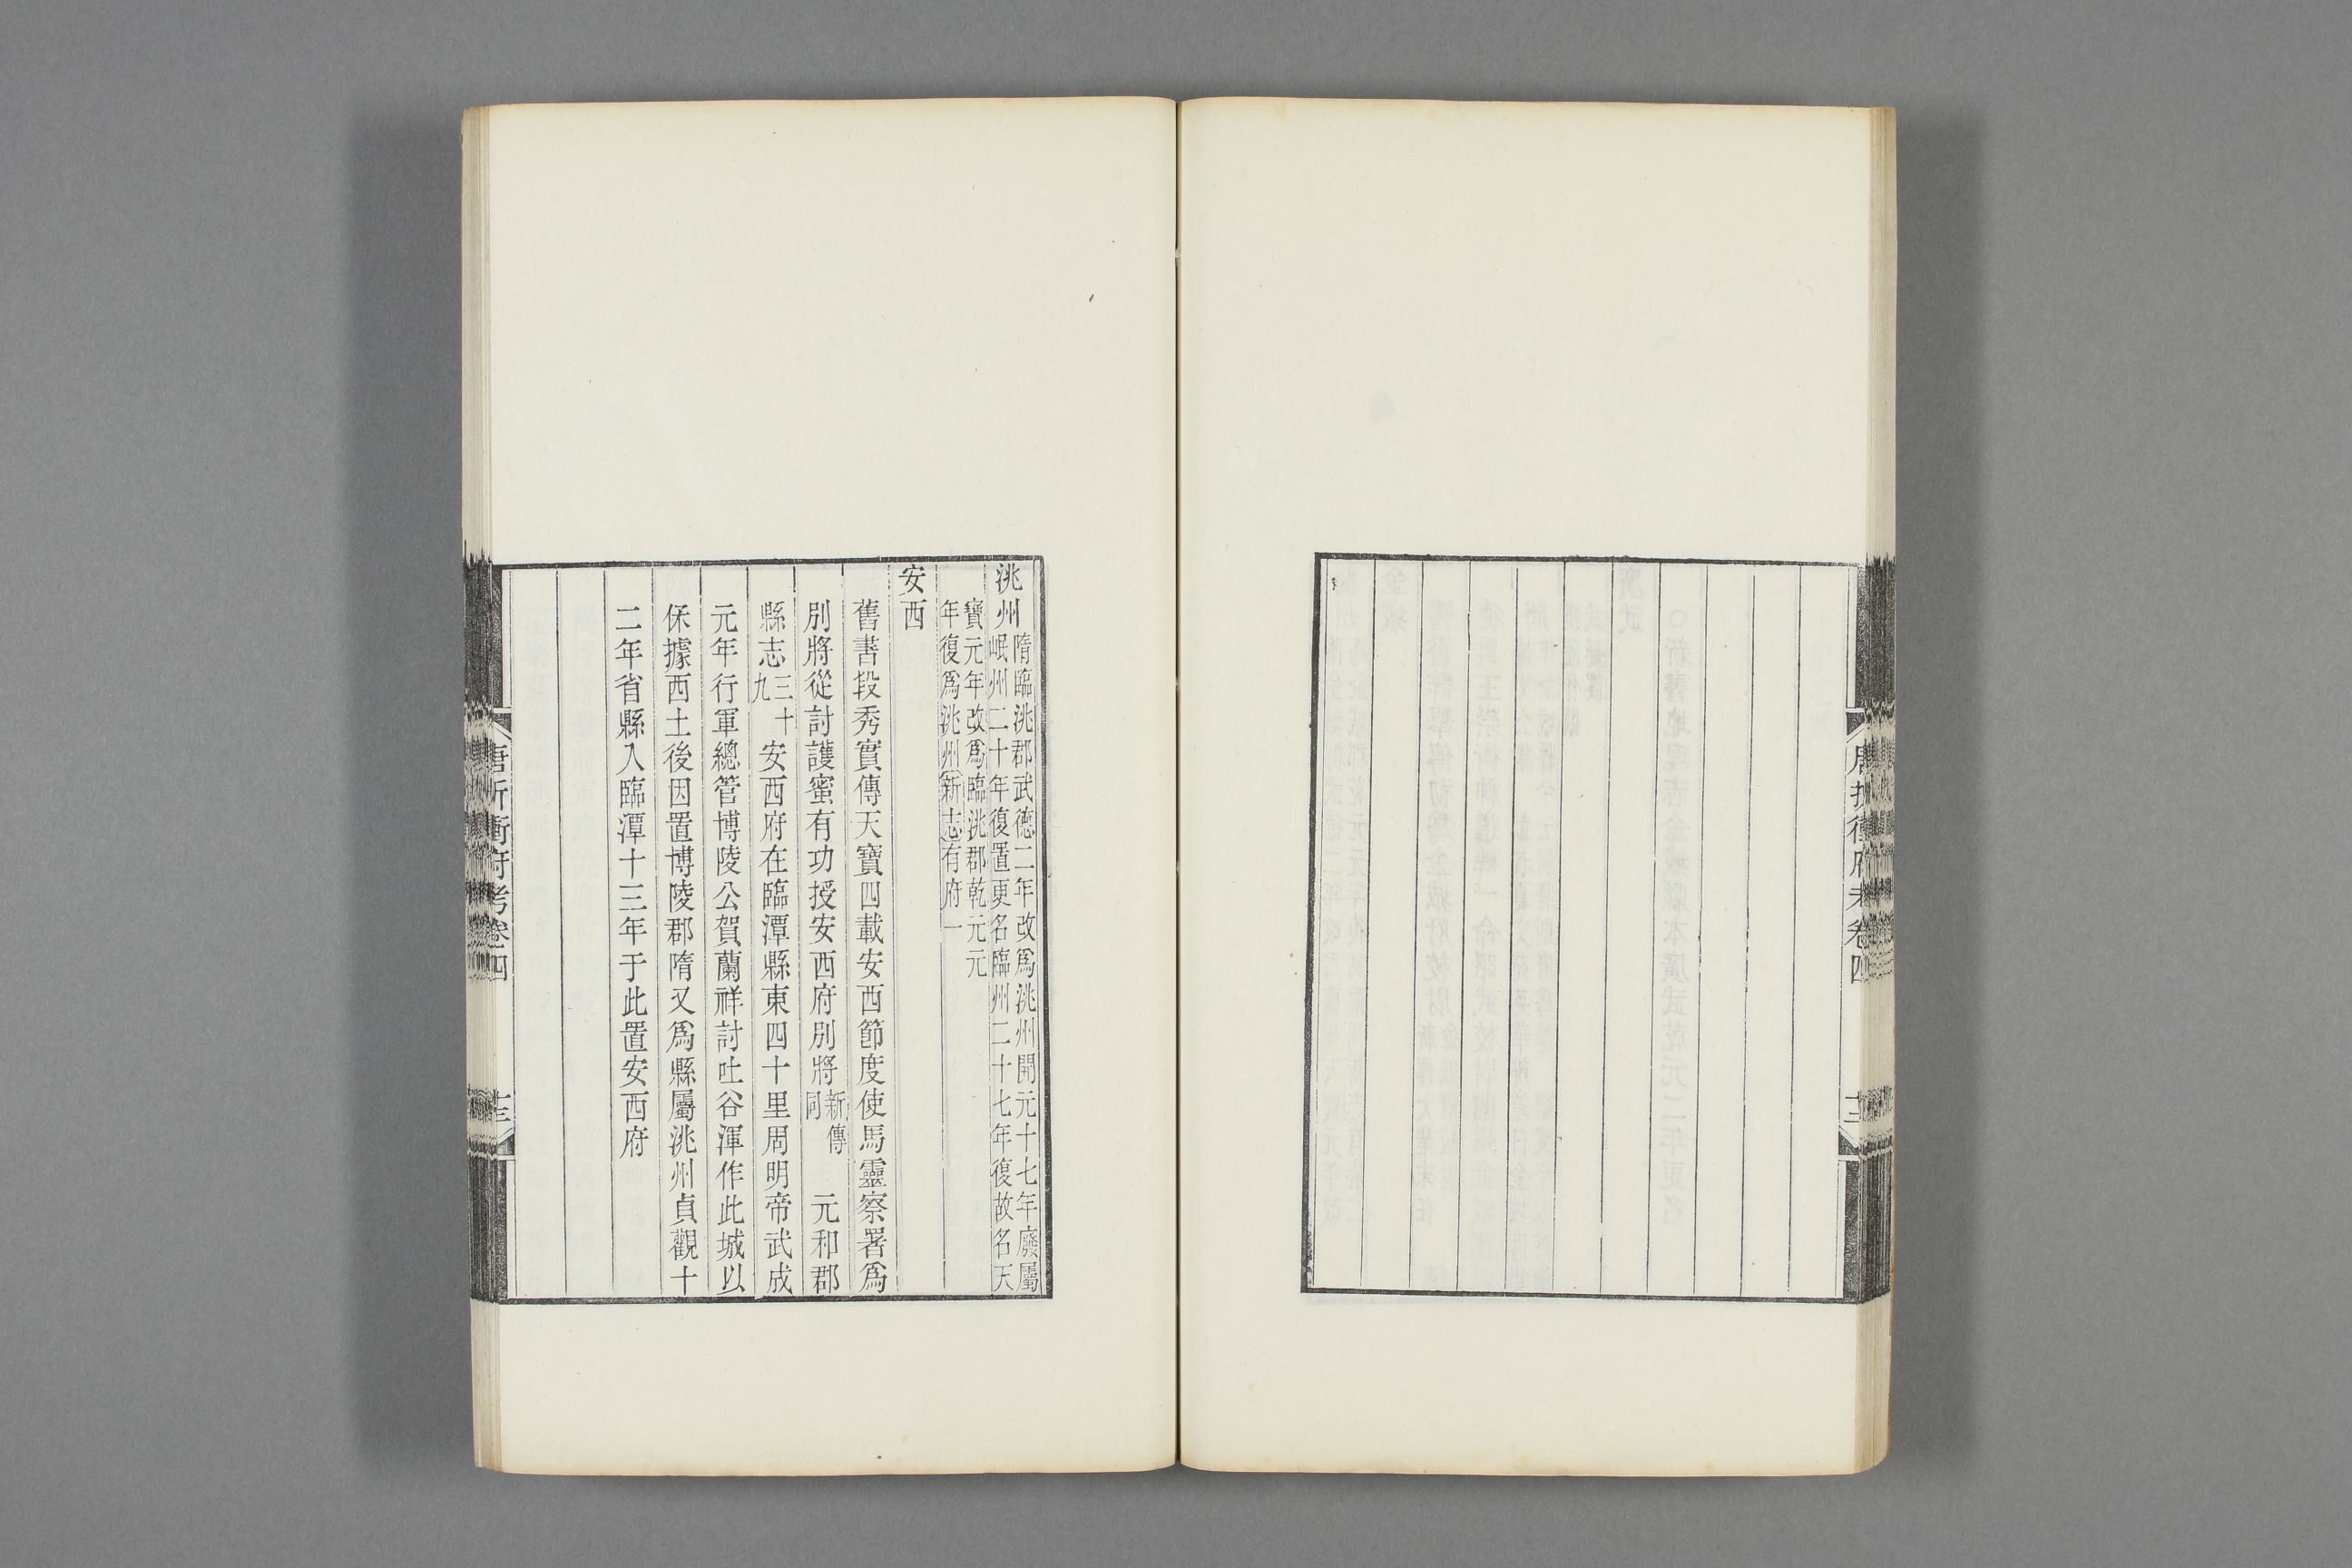 唐折衝府考卷四
十二
洮州隋臨洮郡武德二年改爲洮州開元十七年廢屬
岷州二十年復置更名臨州二十七年復故名天
寶元年改爲臨洮郡乾元元
年復爲洮州新志有府一
安西
舊書段秀實傳天寶四載安西節度使馬靈察署爲
別將從討護蜜有功授安西府別將新傳同　元和郡
縣志三十九　安西府在臨潭縣東四十里周明帝武成
元年行軍總管博陵公賀蘭祥討吐谷渾作此城以
保據西土後因置博陵郡隋又爲縣屬洮州貞觀十
二年省縣入臨潭十三年于此置安西府
唐折衝府考卷四
十三